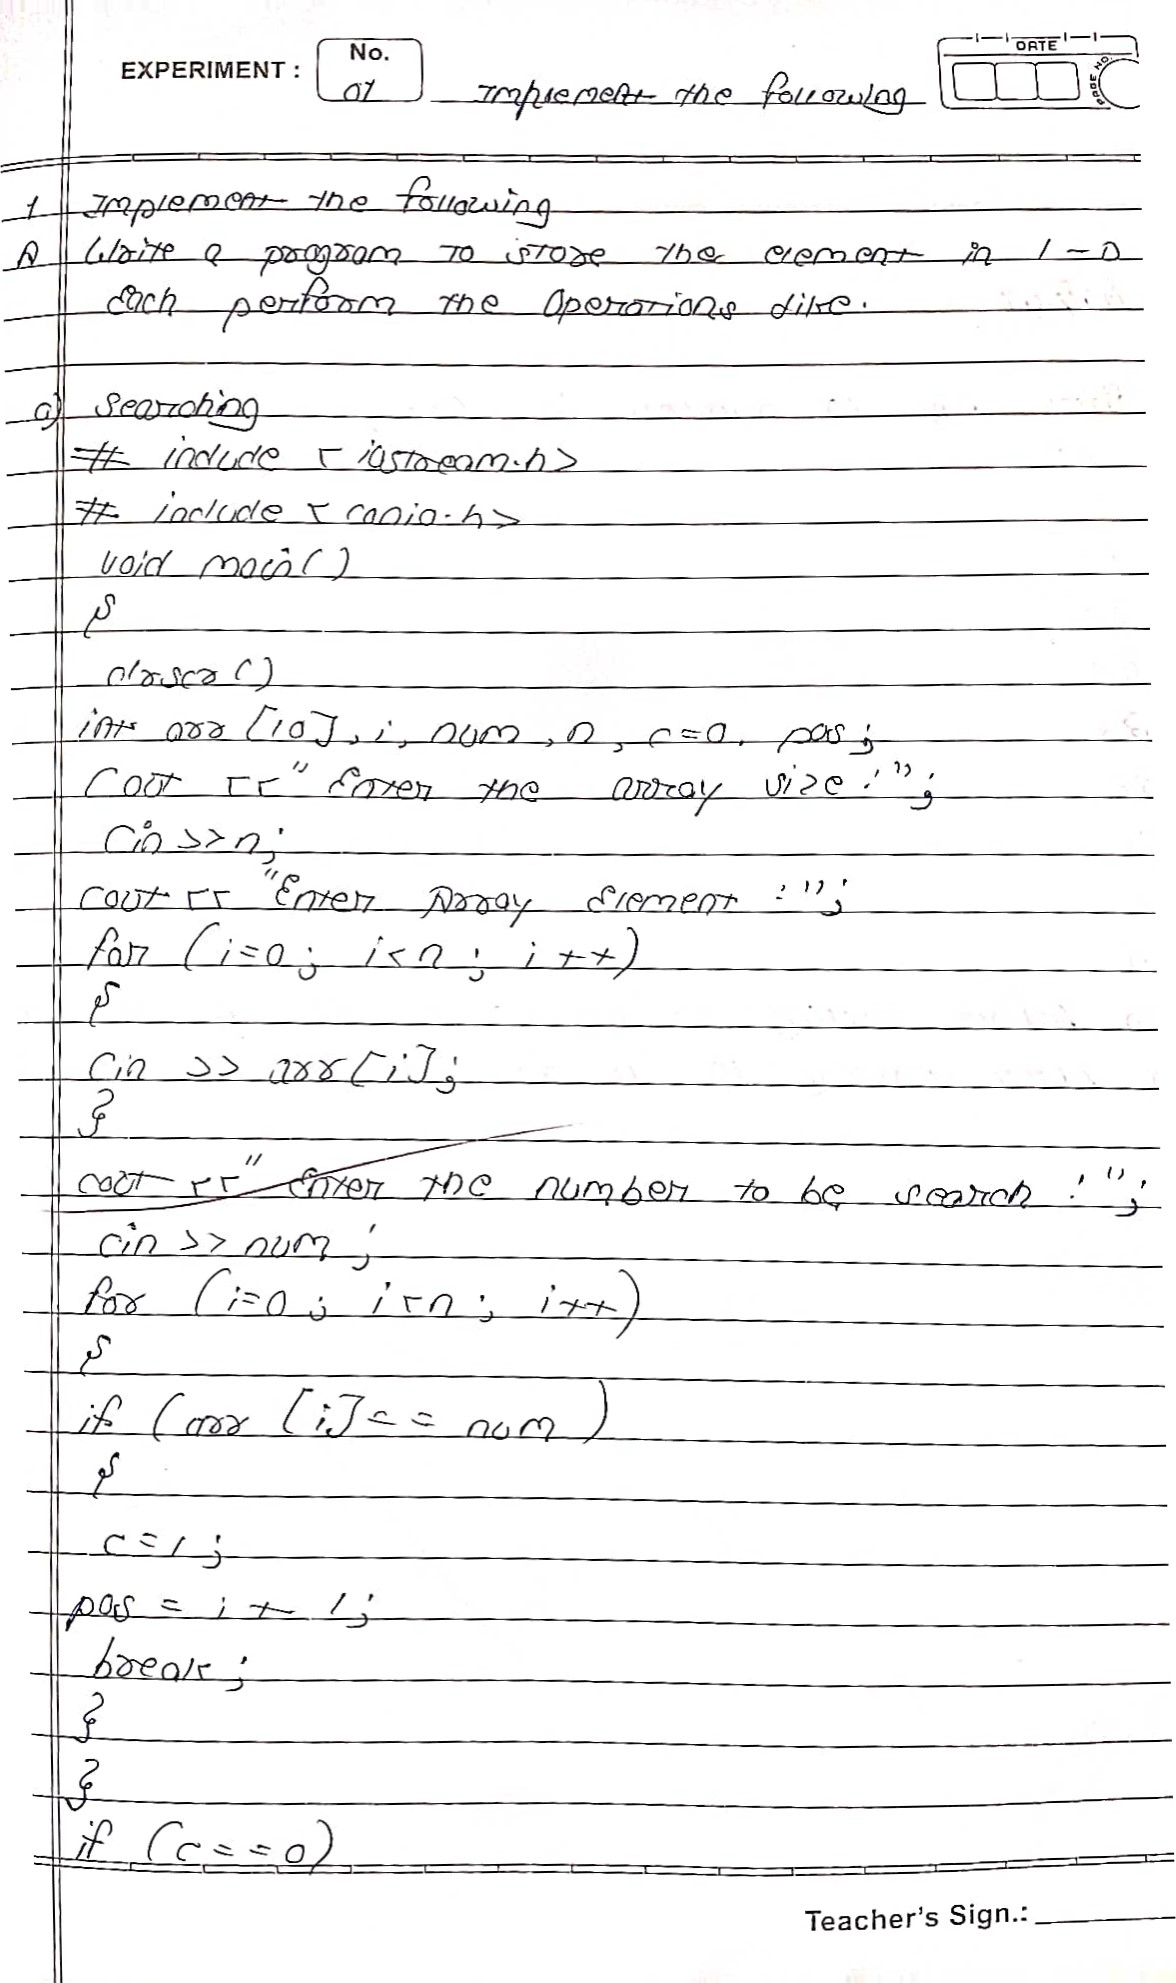 EXPERIMENT :
No.
01
Implement the following
DATE
PAGE NO.
1 Implement the following
A Write a program to store the element in 1-D
Each perform the operations like.
a) Searching
# include <iostream.h>
# include <conio.h>
void main()
{
clrscr()
int arr [10], i, num, n, c=0, pos;
Cout <<" Enter the array size :";
Cin >>n;
cout << "Enter Array Element :";
for (i=0; i<n; i++)
{
Cin >> arr[i];
}
cout <<" Enter the number to be search :";
cin >> num;
for (i=0; i<n; i++)
{
if (arr [i]== num)
{
c=1;
pos = i + 1;
break;
}
}
if (c==0)
Teacher's Sign.: